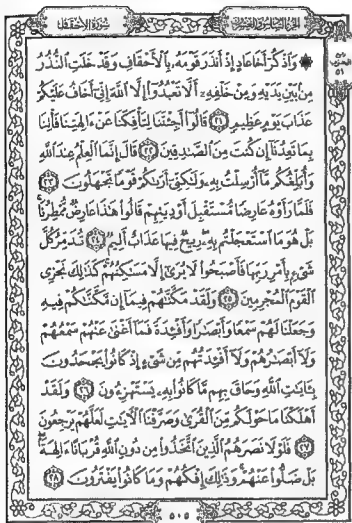 سورة الأحقاف
الجزء السادس والعشرون
۞ وَاذْكُرْ أَخَا عَادٍ إِذْ أَنذَرَ قَوْمَهُ بِالْأَحْقَافِ وَقَدْ خَلَتِ النُّذُرُ
مِن بَيْنِ يَدَيْهِ وَمِنْ خَلْفِهِ أَلَّا تَعْبُدُوا إِلَّا اللَّهَ إِنِّي أَخَافُ عَلَيْكُمْ
عَذَابَ يَوْمٍ عَظِيمٍ ﴿٢١﴾ قَالُوا أَجِئْتَنَا لِتَأْفِكَنَا عَنْ آلِهَتِنَا فَأْتِنَا
بِمَا تَعِدُنَا إِن كُنتَ مِنَ الصَّادِقِينَ ﴿٢٢﴾ قَالَ إِنَّمَا الْعِلْمُ عِندَ اللَّهِ
وَأُبَلِّغُكُم مَّا أُرْسِلْتُ بِهِ وَلَٰكِنِّي أَرَاكُمْ قَوْمًا تَجْهَلُونَ ﴿٢٣﴾
فَلَمَّا رَأَوْهُ عَارِضًا مُّسْتَقْبِلَ أَوْدِيَتِهِمْ قَالُوا هَٰذَا عَارِضٌ مُّمْطِرُنَا
بَلْ هُوَ مَا اسْتَعْجَلْتُم بِهِ رِيحٌ فِيهَا عَذَابٌ أَلِيمٌ ﴿٢٤﴾ تُدَمِّرُ كُلَّ
شَيْءٍ بِأَمْرِ رَبِّهَا فَأَصْبَحُوا لَا يُرَىٰ إِلَّا مَسَاكِنُهُمْ كَذَٰلِكَ نَجْزِي
الْقَوْمَ الْمُجْرِمِينَ ﴿٢٥﴾ وَلَقَدْ مَكَّنَّاهُمْ فِيمَا إِن مَّكَّنَّاكُمْ فِيهِ
وَجَعَلْنَا لَهُمْ سَمْعًا وَأَبْصَارًا وَأَفْئِدَةً فَمَا أَغْنَىٰ عَنْهُمْ سَمْعُهُمْ
وَلَا أَبْصَارُهُمْ وَلَا أَفْئِدَتُهُم مِّن شَيْءٍ إِذْ كَانُوا يَجْحَدُونَ
بِآيَاتِ اللَّهِ وَحَاقَ بِهِم مَّا كَانُوا بِهِ يَسْتَهْزِئُونَ ﴿٢٦﴾ وَلَقَدْ
أَهْلَكْنَا مَا حَوْلَكُم مِّنَ الْقُرَىٰ وَصَرَّفْنَا الْآيَاتِ لَعَلَّهُمْ يَرْجِعُونَ
﴿٢٧﴾ فَلَوْلَا نَصَرَهُمُ الَّذِينَ اتَّخَذُوا مِن دُونِ اللَّهِ قُرْبَانًا آلِهَةً
بَلْ ضَلُّوا عَنْهُمْ وَذَٰلِكَ إِفْكُهُمْ وَمَا كَانُوا يَفْتَرُونَ ﴿٢٨﴾
٥٠٥